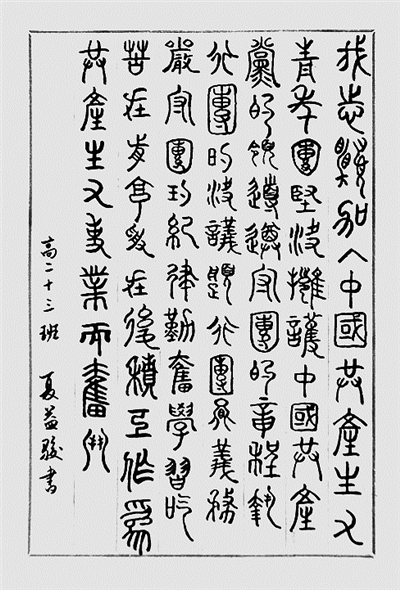 我志願加入中國共產主义
青年團堅決擁護中國共產
黨的領導遵守團的章程執
行團的決議履行團員義務
嚴守團的紀律勤奮學習吃
苦在前享受在後積工作為
共產主义事業而奮鬥
高二十三班 夏益駿書